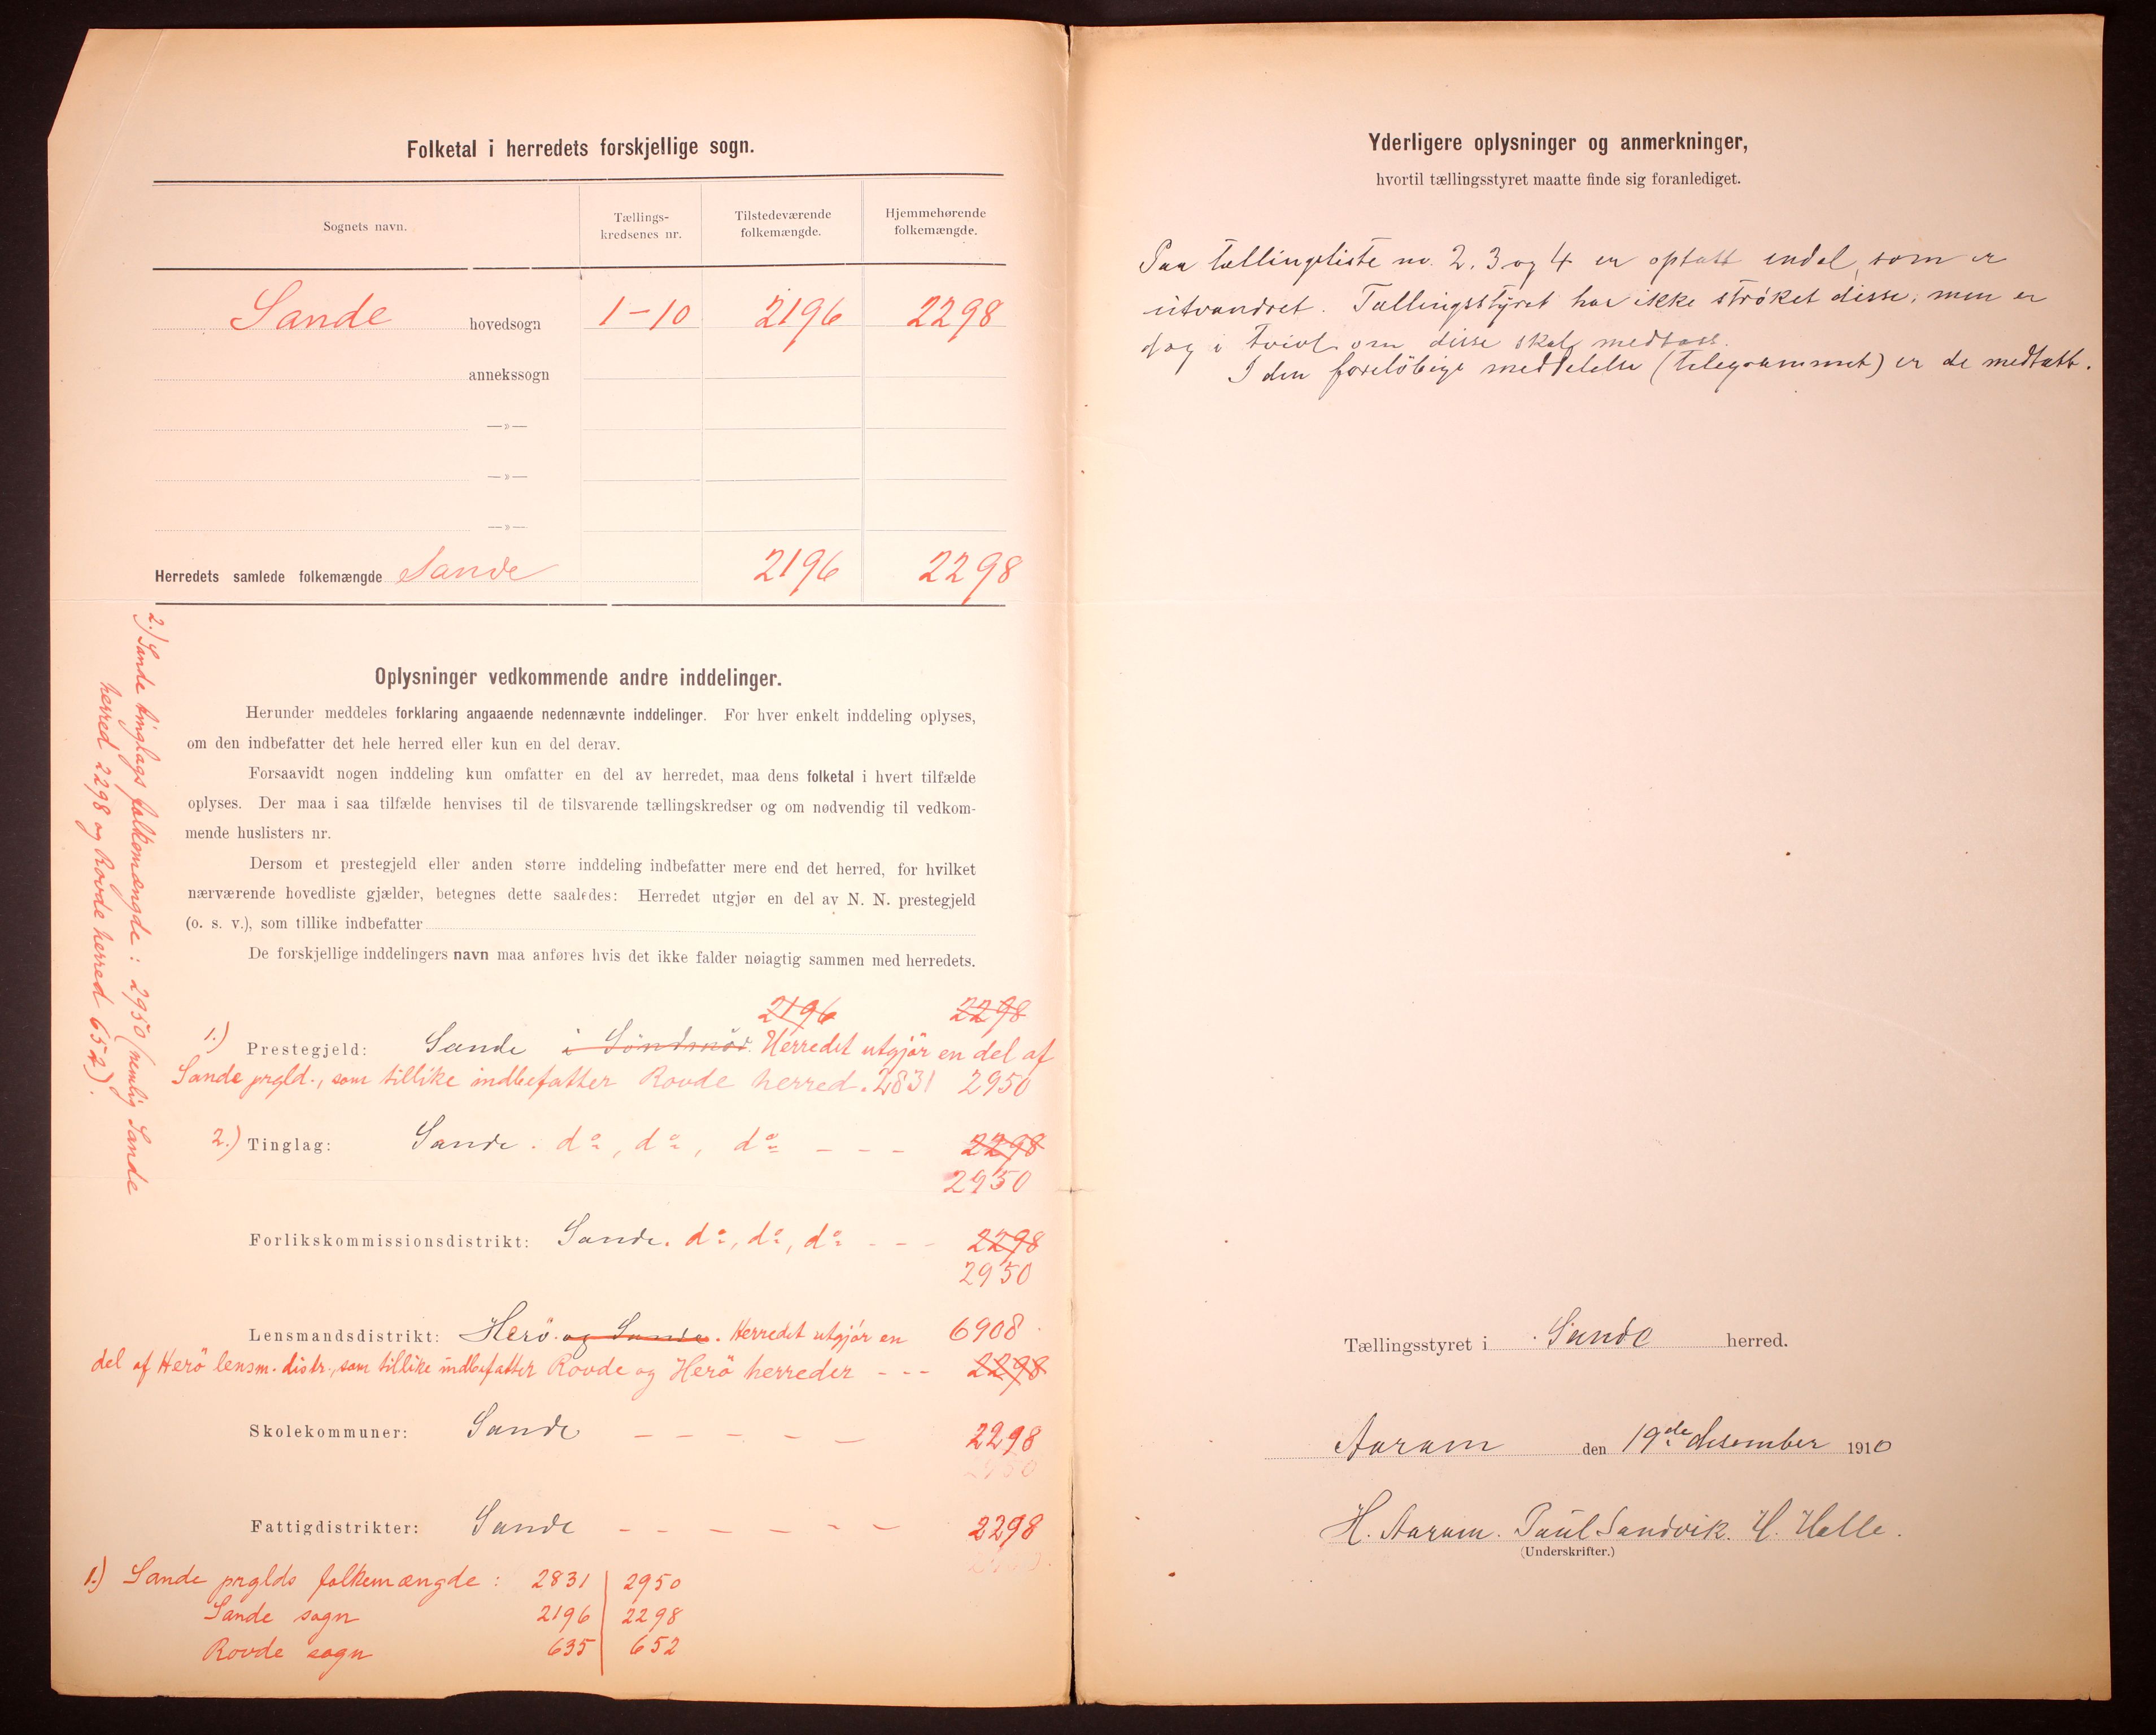 Folketal i herredets forskjellige sogn.
Sognets navn. Tællings-kredsenes nr. Tilstedeværende folkemængde. Hjemmehørende folkemængde.
Sande hovedsogn 1-10 2196 2298
annekssogn
—»—
—»—
—»—
Herredets samlede folkemængde Sande 2196 2298
Oplysninger vedkommende andre inddelinger.
Herunder meddeles forklaring angaaende nedennævnte inddelinger. For hver enkelt inddeling oplyses,
om den indbefatter det hele herred eller kun en del derav.
Forsaavidt nogen inddeling kun omfatter en del av herredet, maa dens folketal i hvert tilfælde
oplyses. Der maa i saa tilfælde henvises til de tilsvarende tællingskredser og om nødvendig til vedkom-
mende huslisters nr.
Dersom et prestegjeld eller anden større inddeling indbefatter mere end det herred, for hvilket
nærværende hovedliste gjælder, betegnes dette saaledes: Herredet utgjør en del av N. N. prestegjeld
(o. s. v.), som tillike indbefatter
De forskjellige inddelingers navn maa anføres hvis det ikke falder nøiagtig sammen med herredets.
2196 2298
1.) Prestegjeld: Sande i Søndmør. Herredet utgjör en del af
Sande prgld., som tillike indbefatter Rovde herred. 2831 2950
2.) Tinglag: Sande. do, do, do - - - 2298
2950
Forlikskommissionsdistrikt: Sande. do, do, do - - - 2298
2950
Lensmandsdistrikt: Herö og Sande. Herredet utgjör en 6908
del af Herö lensm. distr., som tillike indbefatter Rovde og Herö herreder - - - 2298
Skolekommuner: Sande - - - - - 2298
2950
Fattigdistrikter: Sande - - - - - - 2298
1.) Sande prglds folkemængde: 2831 | 2950
Sande sogn 2196 | 2298
Rovde sogn 635 | 652
2.) Sande tinglags folkemængde: 2950 (nemlig Sande
herred 2298 og Rovde herred 652).
Yderligere oplysninger og anmerkninger,
hvortil tællingsstyret maatte finde sig foranlediget.
Paa tællingsliste nr. 2, 3 og 4 er optatt endel, som er
utvandret. Tællingsstyret har ikke strøket disse, men er
dog i tvivl om disse skal medtass.
I den foreløbige meddelelse (Telegrammet) er de medtatt.
Tællingsstyret i Sande herred.
Aaram den 19de desember 1910
H. Aaram. Paul Sandvik. H. Helle.
(Underskrifter.)